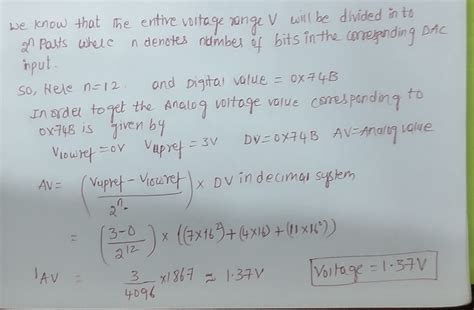 we know that the entire voltage range V will be divided in to
2ⁿ Parts where n denotes number of bits in the corresponding DAC
input.
So, Here n=12. and Digital value = 0x74B
In order to get the Analog voltage value corresponding to
0x74B is given by
Vlowref=0V Vupref=3V DV=0x74B AV=Analog value
AV= (Vupref-Vlowref / 2ⁿ) x DV in decimal system
= (3-0 / 2¹²) x ((7x16²)+(4x16)+(11x16⁰))
AV = 3/4096 x1867 ≈ 1.37V
Voltage = 1.37V